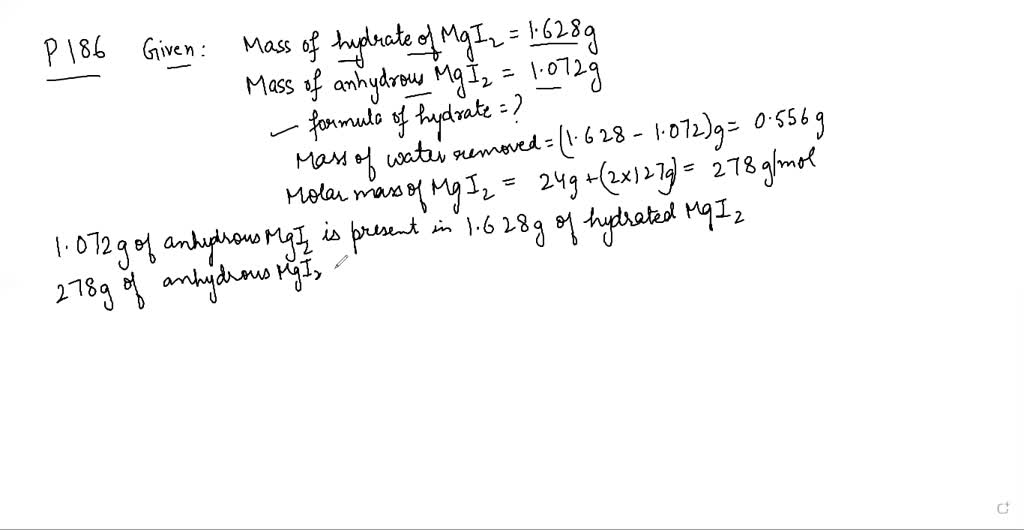 P186 Given: Mass of hydrate of MgI₂ = 1.628g
Mass of anhydrous MgI₂ = 1.072g
✓ formula of hydrate = ?
Mass of water removed = (1.628 - 1.072)g = 0.556g
Molar mass of MgI₂ = 24g + (2x127g) = 278 g/mol
1.072g of anhydrous MgI₂ is present in 1.628g of hydrated MgI₂
278g of anhydrous MgI₂